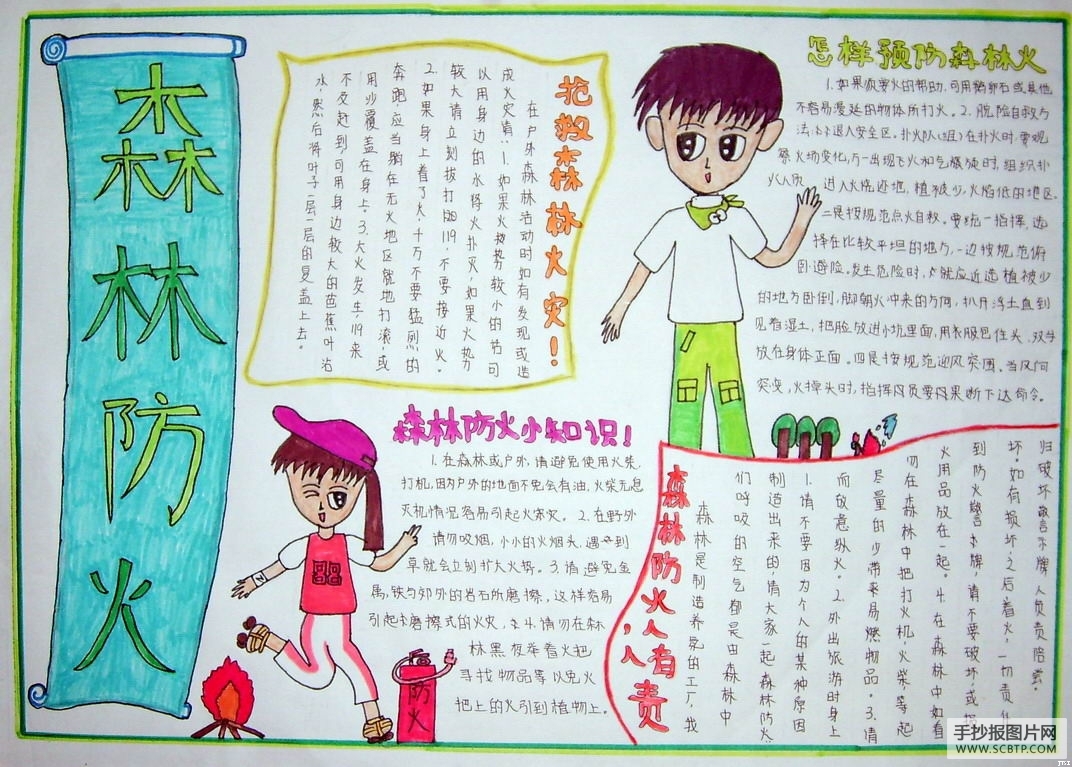 森林防火
抢救森林火灾！
在户外森林活动时如有发现或造
成火灾请:1.如果火势较小的话可
以用身边的水将火扑灭,如果火势
较大请立刻拨打120 119,不要接近火。
2.如果身上着了火,千万不要猛烈的
奔跑应当躺在无火地区就地打滚,或
用沙覆盖在身上。3.大火发生,119来
不及赶到可用身边较大的芭蕉叶沾
水,然后将叶子一层一层的复盖上去。
怎样预防森林火
1.如果须要火的帮助,可用鹅卵石或其他
不容易漫延的物体所打火。2.脱险自救方
法:(1)退入安全区。扑火队(组)在扑火时,要观
察火场变化,万一出现飞火和气旋时,组织扑
火人员 进入火烧迹地,植被少,火焰低的地区。
二是按规范点火自救。要统一指挥,选
择在比较平坦的地方,一边按规范俯
卧避险。发生危险时,就应近选植被少
的地方卧倒,脚朝火冲来的方向,扒开浮土直到
见着湿土,把脸放进小坑里面,用衣服包住头,双手
放在身体正面。四是按规范迎风突围。当风向
突变,火掉头时,指挥员要果断下达命令。
森林防火小知识！
1.在森林或户外,请避免使用火柴,
打机,因为户外的地面不免会有油,火柴无息
灭机情况容易引起火灾。2.在野外
请勿吸烟,小小的火烟头,遇到
草就会立刻扩大火势。3.请避免金
属,铁与郊外的岩石所磨擦,这样容易
引起磨擦式的火灾。4.请勿在森
林黑夜举着火把
寻找物品等以免火
把上的火引到植物上。
防火
森林防火,人人有责
森林是制造养氧的工厂,我
们呼吸的空气都是由森林中
制造出来的,请大家一起森林防火
1.请不要因为个人的某种原因
而放意纵火。2.外出旅游时身上
尽量的少带来易燃物品。3.请
勿在森林中把打火机火柴等起
火用品放在一起。4.在森林中如看
到防火警示牌,请不要破坏,或
坏,如有损坏,之后着火,一切责任
归破坏警示牌人员责责赔尝。
手抄报图片网
WWW.SCBTP.COM